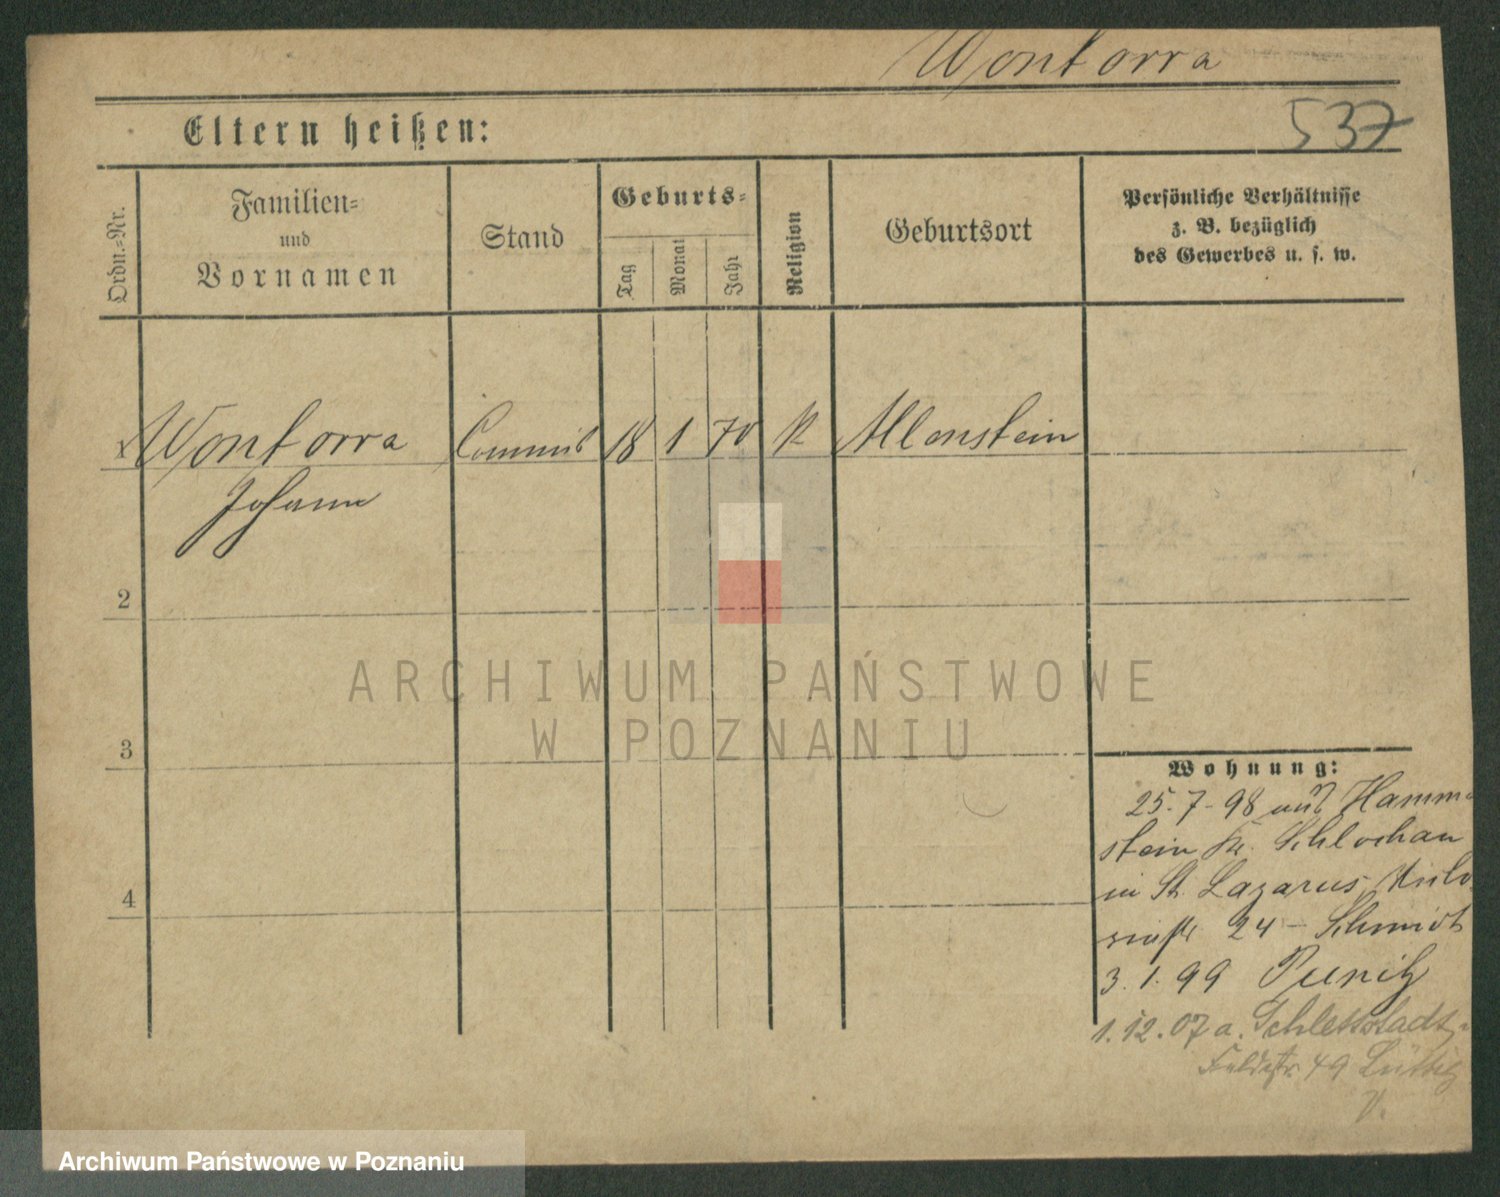 Wontorra
537
Eltern heißen:
Ordn.-Nr.
Familien-
und
Vornamen
Stand
Geburts-
Tag
Monat
Jahr
Religion
Geburtsort
Persönliche Verhältnisse
z. B. bezüglich
des Gewerbes u. s. w.
1 Wontorra Commis 18 1 70 k Allenstein
Johann
2
ARCHIWUM PAŃSTWOWE
W POZNANIU
3
4
Wohnung:
25.7-98 aus Hammer-
stein Kr. Schlochau
in St. Lazarus
24 - Schmidt
3.1.99 Punitz
1.12.07 a. Schlettstadt,
Feldstr. 49
V.
Archiwum Państwowe w Poznaniu